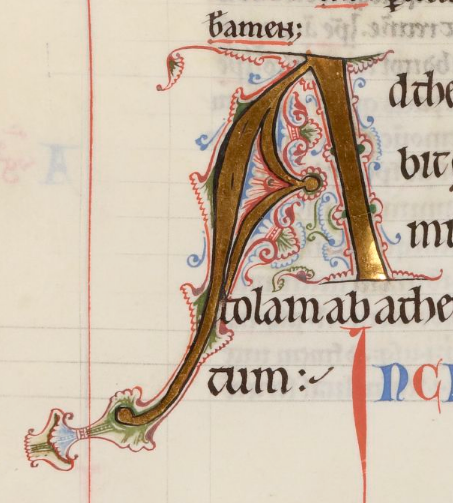 bamen;
A dthe
bit
mi
tolam ab athe
tum :
INCI